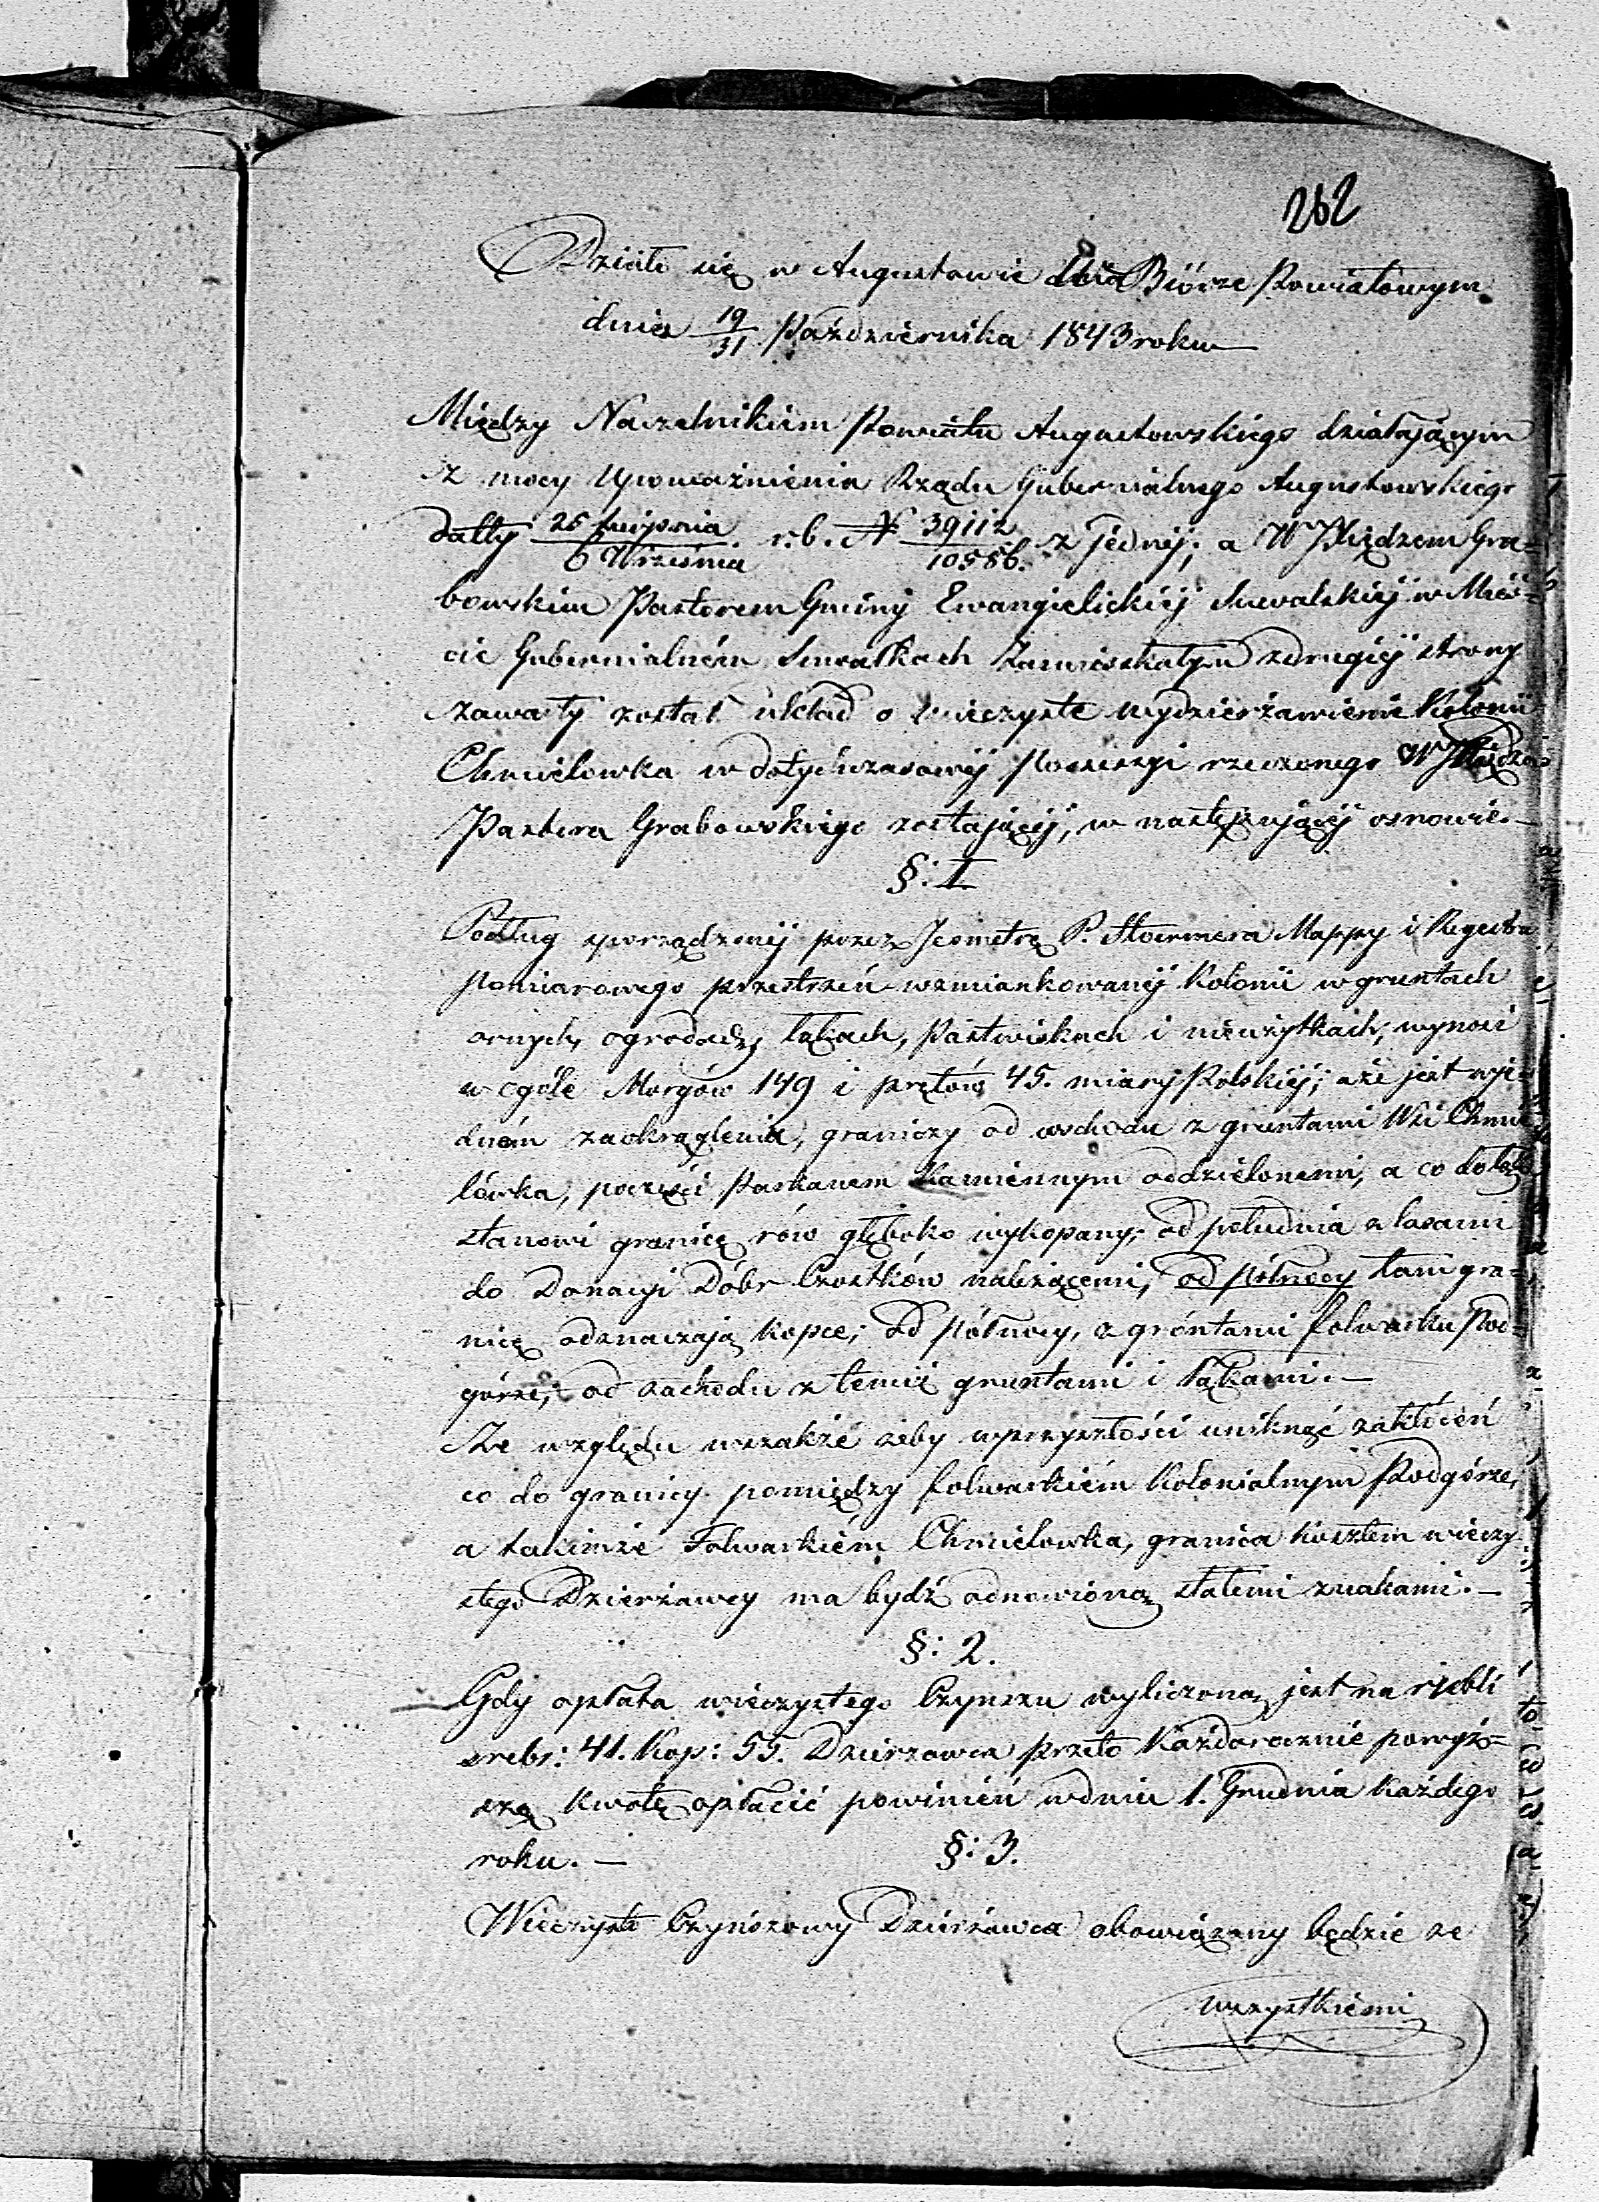 262
Działo się w Augustowie w Biórze Powiatowym
dnia 19/31 Października 1843 roku
Między Naczelnikiem Powiatu Augustowskiego działającym
z mocy upoważnienia Rządu Gubernialnego Augustowskiego
datty 25 Sierpnia/6 Września r. b. N 39112/10556. z jednej; a W Xiędzem Gra=
bowskim Pastorem Gminy Ewangielickiéj Suwalskiéj w Mieś=
cie Gubernialném Suwałkach Zamieszkałym z drugiéj strony
zawarty został układ o wieczyste wydzierżawienie Kolonii
Chmielowka w dotychczasowéj Possessyi rzeczonego W Xiędza
Pastora Grabowskiego zostającéj, w następującéj osnowie.—
§: 1
Podług sporządzonéj przez Jeometrę P. Stoermera Mappy i Regestru
pomiarowego przestrzeń wzmiankowanéj Kolonii w gruntach
ornych, ogrodach, łąkach, Pastwiskach i nieużytkach, wynosi
w ogóle Morgów 149 i prętów 45. miary Polskiéj; a że jest w je=
dném zaokrągleniu, graniczy od wschodu z gruntami Wsi Chmie
lówka, poczęści Parkanem Kamiennym oddzielonemi, a co do łąk
stanowi granicę rów głęboko wykopany; od południa z lasami
do Donacyi Dóbr Czostków należącemi, od północy tam gra=
nicę odznaczają kopce; od północy, z gróntami folwarku Pod=
górze; od zachodu z temiż gruntami i łąkami.—
Ze względu wszakże żeby w przyszłości uniknąć zakłóceń
co do granicy pomiędzy folwarkiem Kolonialnym Podgórze,
a takimże Folwarkiém Chmielowka, granica kosztem wieczy
stego Dzierżawcy ma bydź odnowioną stałemi znakami.—
§: 2.
Gdy opłata wieczystego Czynszu wyliczoną jest na rjebli
srebr: 41. Kop: 55. Dzierzawca przeto każdorocznie powyż=
szą kwotę opłacić powinien w dniu 1. Grudnia każdego
roku.—
§: 3.
Wieczysto Czynszowy Dzierżawca obowiązany będzie ze
wszystkiemi